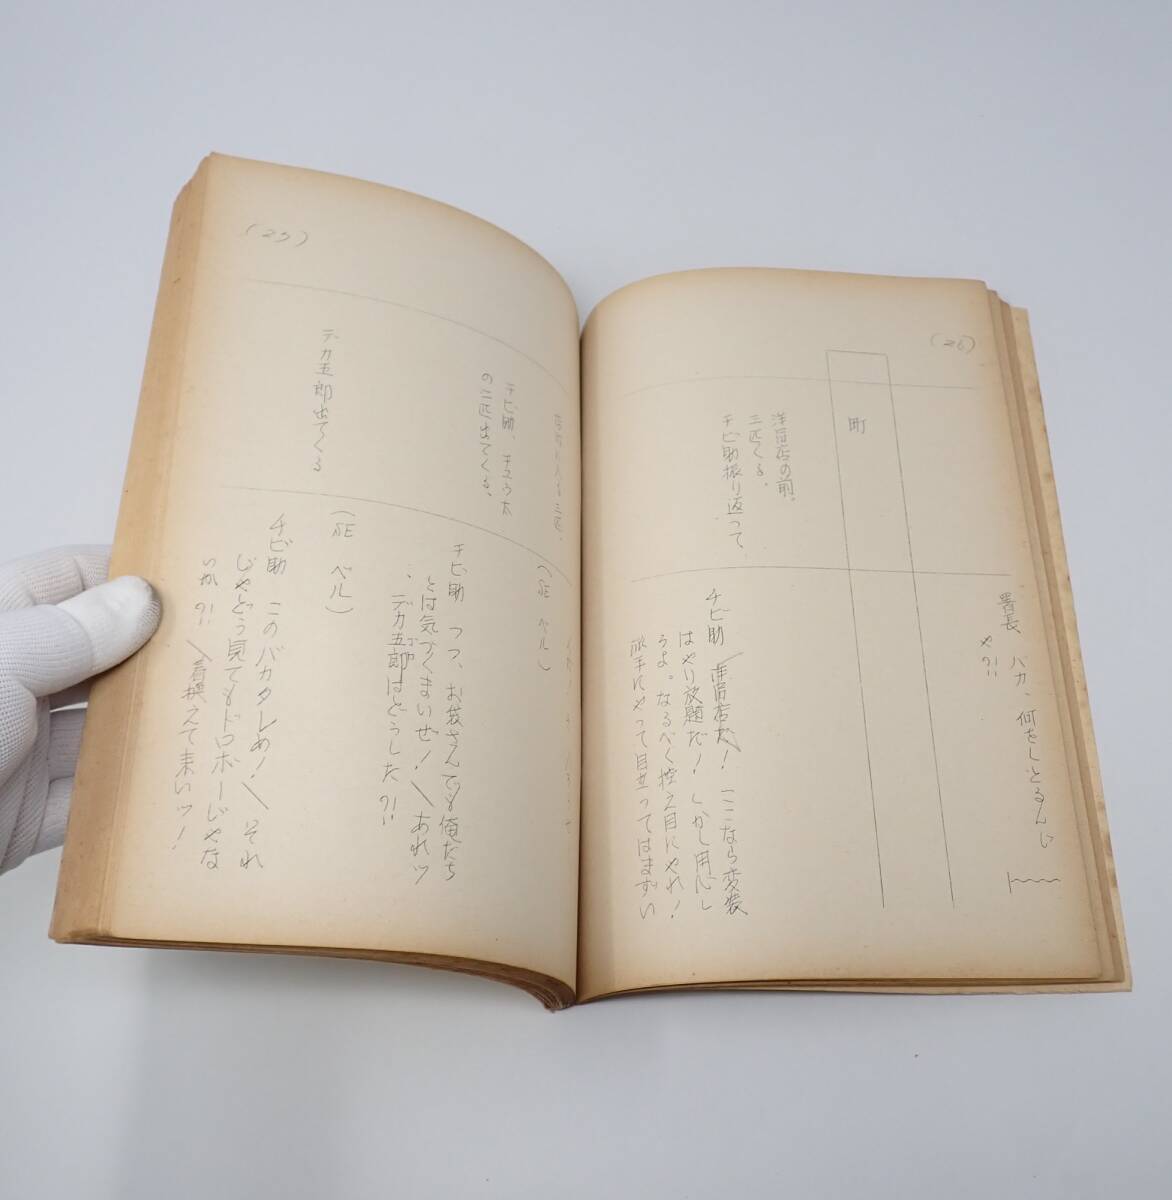 (26)
署長 バカ、何をしとるんじ
ゃ?!!
町
洋品店の前。
三匹くる。
チビ助振り返って、
チビ助 洋品店だ! ここなら変装
はやり放題だ! しかし用心し
ろよ。なるべく控え目にやれ!
派手にやって目立ってはまずい
(25)
三匹、
(SE ベル)
チビ助、チュウ太
の二匹出てくる、
チビ助 フフ、お袋さんでも俺たち
とは気づくまいぜ! あれッ
、デカ五郎はどうした?!!
デカ五郎出てくる
(SE ベル)
チビ助 このバカタレめ! それ
じゃどう見てもドロボーじゃな
いか?!! 着換えて来いッ!